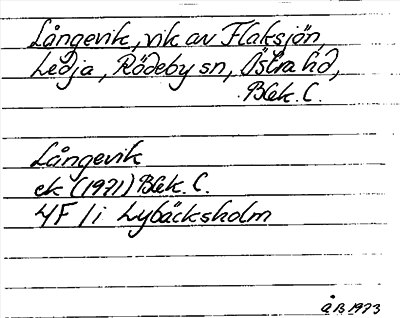 Långevik, vik av Flaksjön
Ledja, Rödeby sn, Östra hd,
Blek. C.
Långevik
ek (1971) Blek. C.
4F /i Lybäcksholm
ÅB 1973